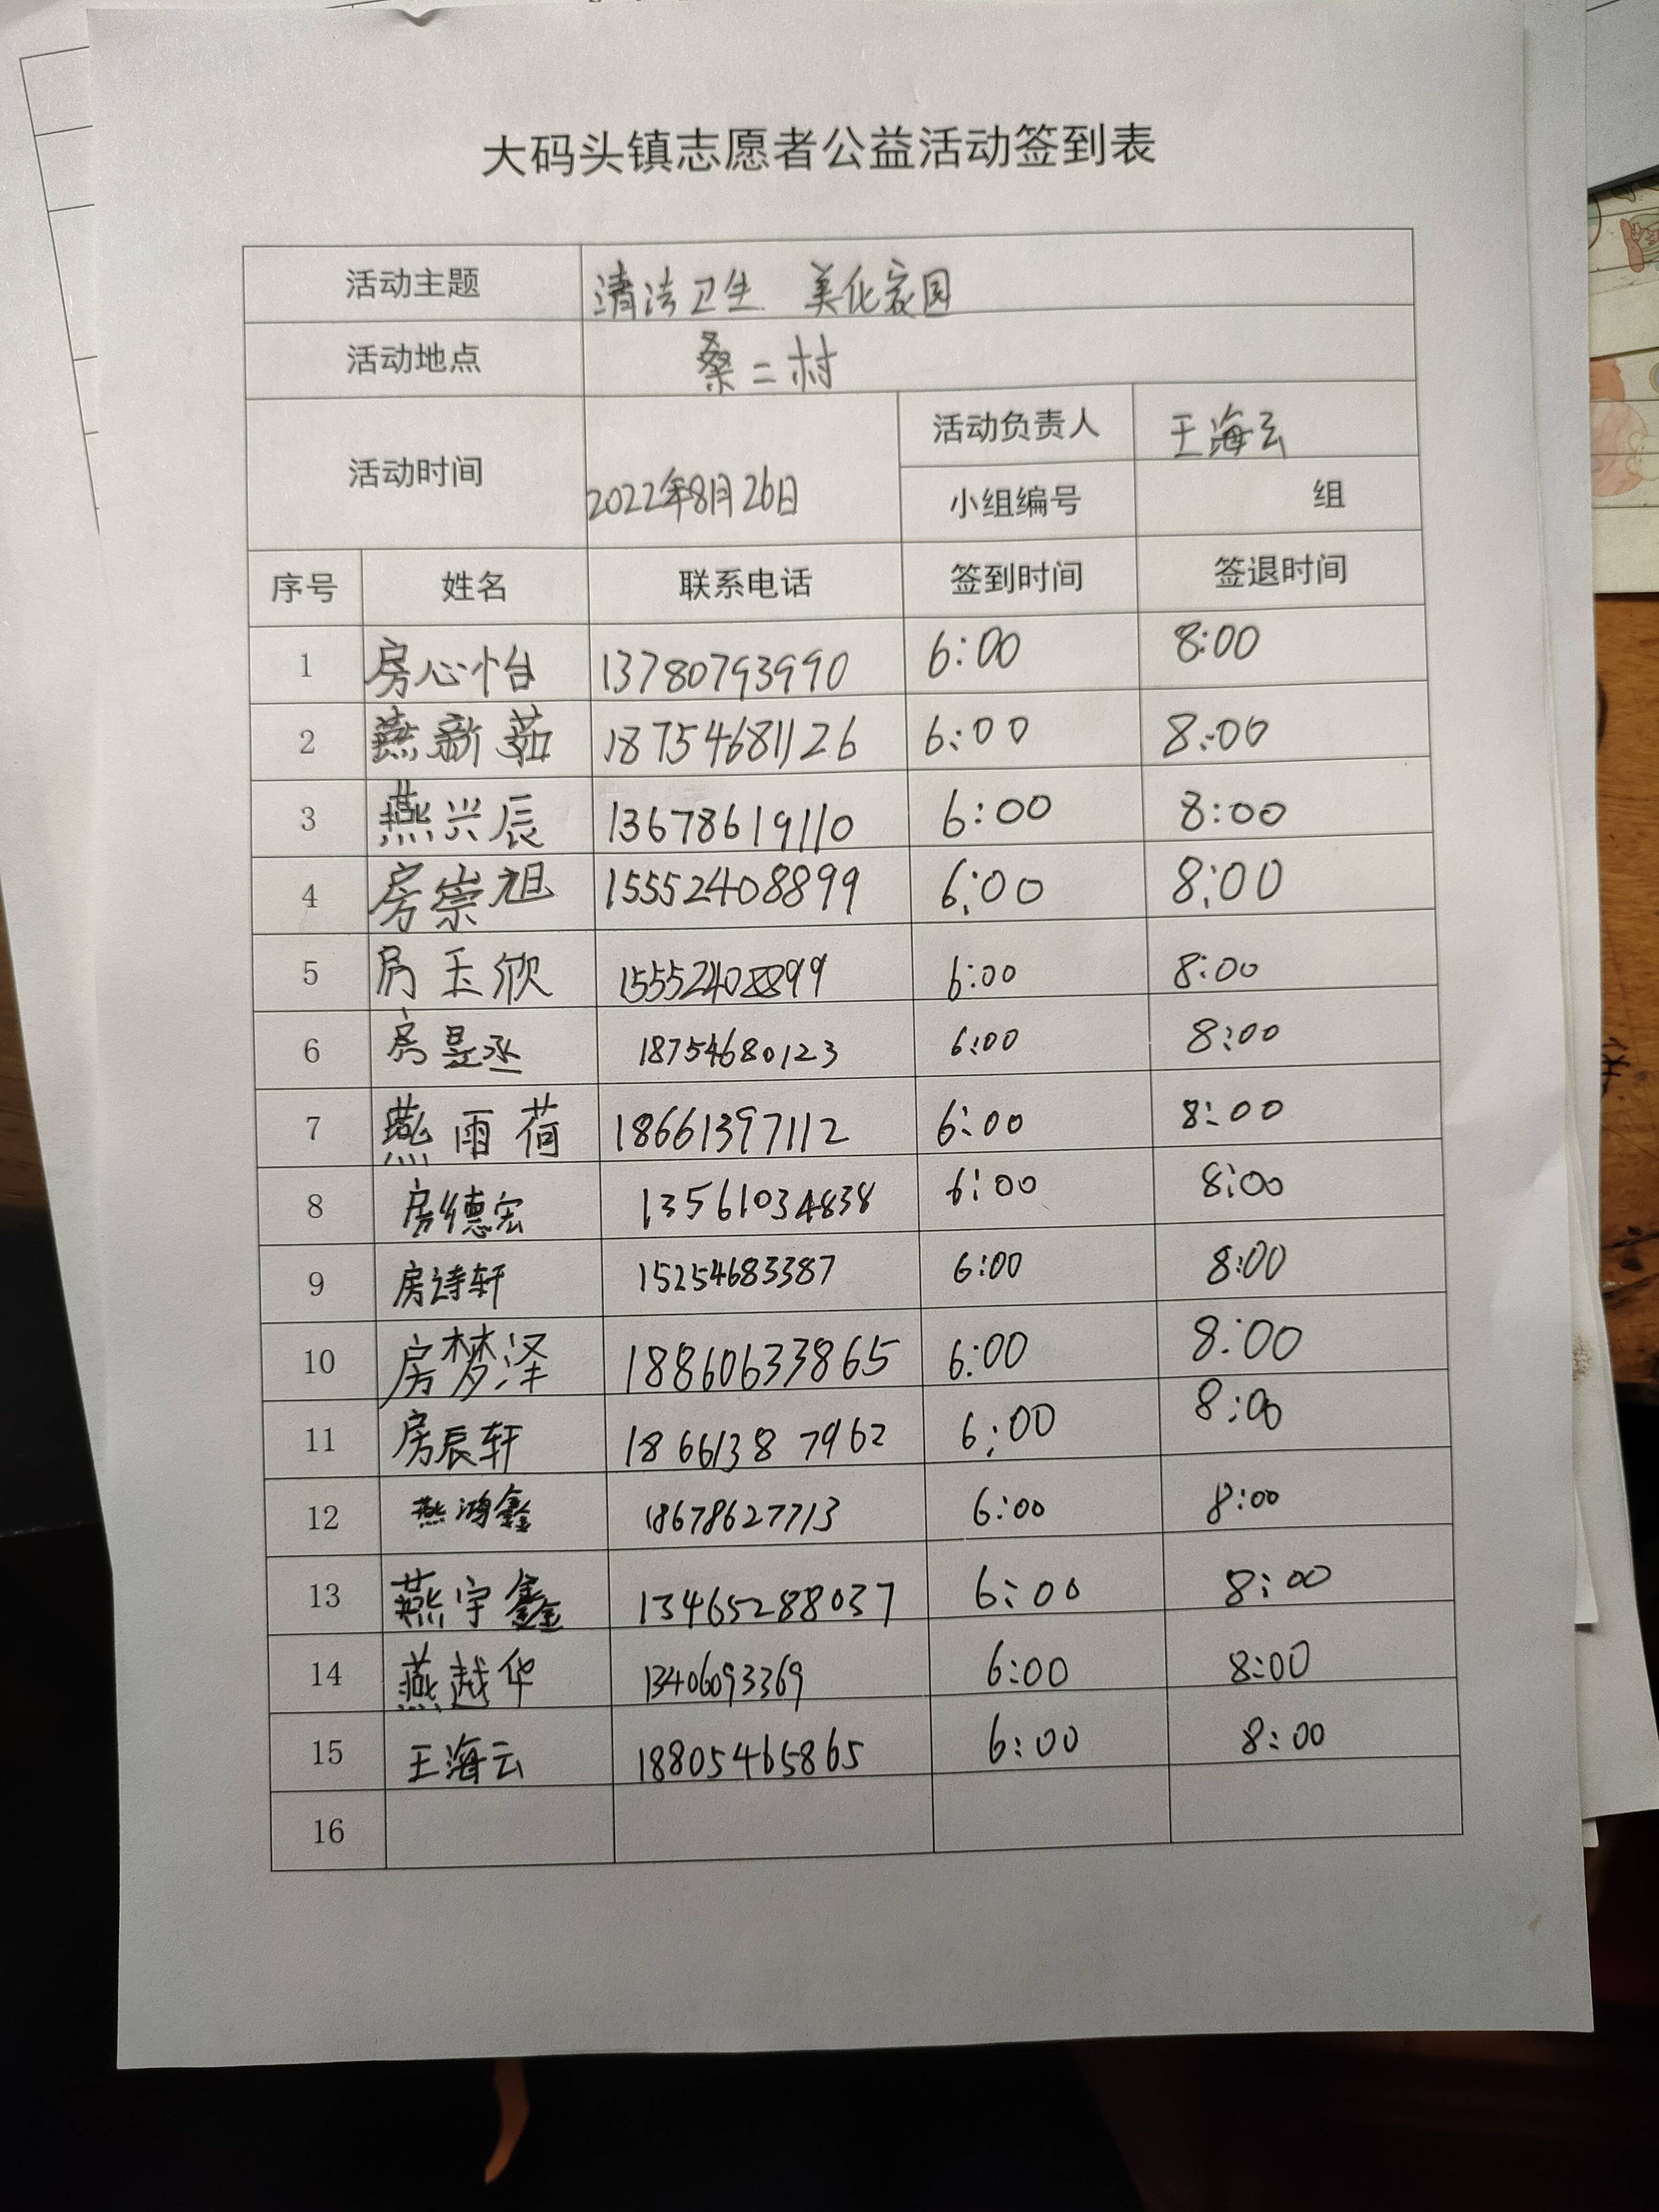 大码头镇志愿者公益活动签到表
活动主题 清洁卫生 美化家园
活动地点 桑二村
活动时间 2022年8月26日 活动负责人 王海云
小组编号 组
序号 姓名 联系电话 签到时间 签退时间
1 房心怡 13780793990 6:00 8:00
2 燕新茹 18754681126 6:00 8:00
3 燕兴辰 13678619110 6:00 8:00
4 房崇旭 15552408899 6:00 8:00
5 房玉欣 15552408899 6:00 8:00
6 房昱丞 18754680123 6:00 8:00
7 燕雨荷 18661397112 6:00 8:00
8 房德宏 13561034838 6:00 8:00
9 房诗轩 15254683387 6:00 8:00
10 房梦泽 18860633865 6:00 8:00
11 房辰轩 18661387962 6:00 8:00
12 燕鸿鑫 18678627713 6:00 8:00
13 燕宇鑫 13465288037 6:00 8:00
14 燕越华 13406093369 6:00 8:00
15 王海云 18805465865 6:00 8:00
16